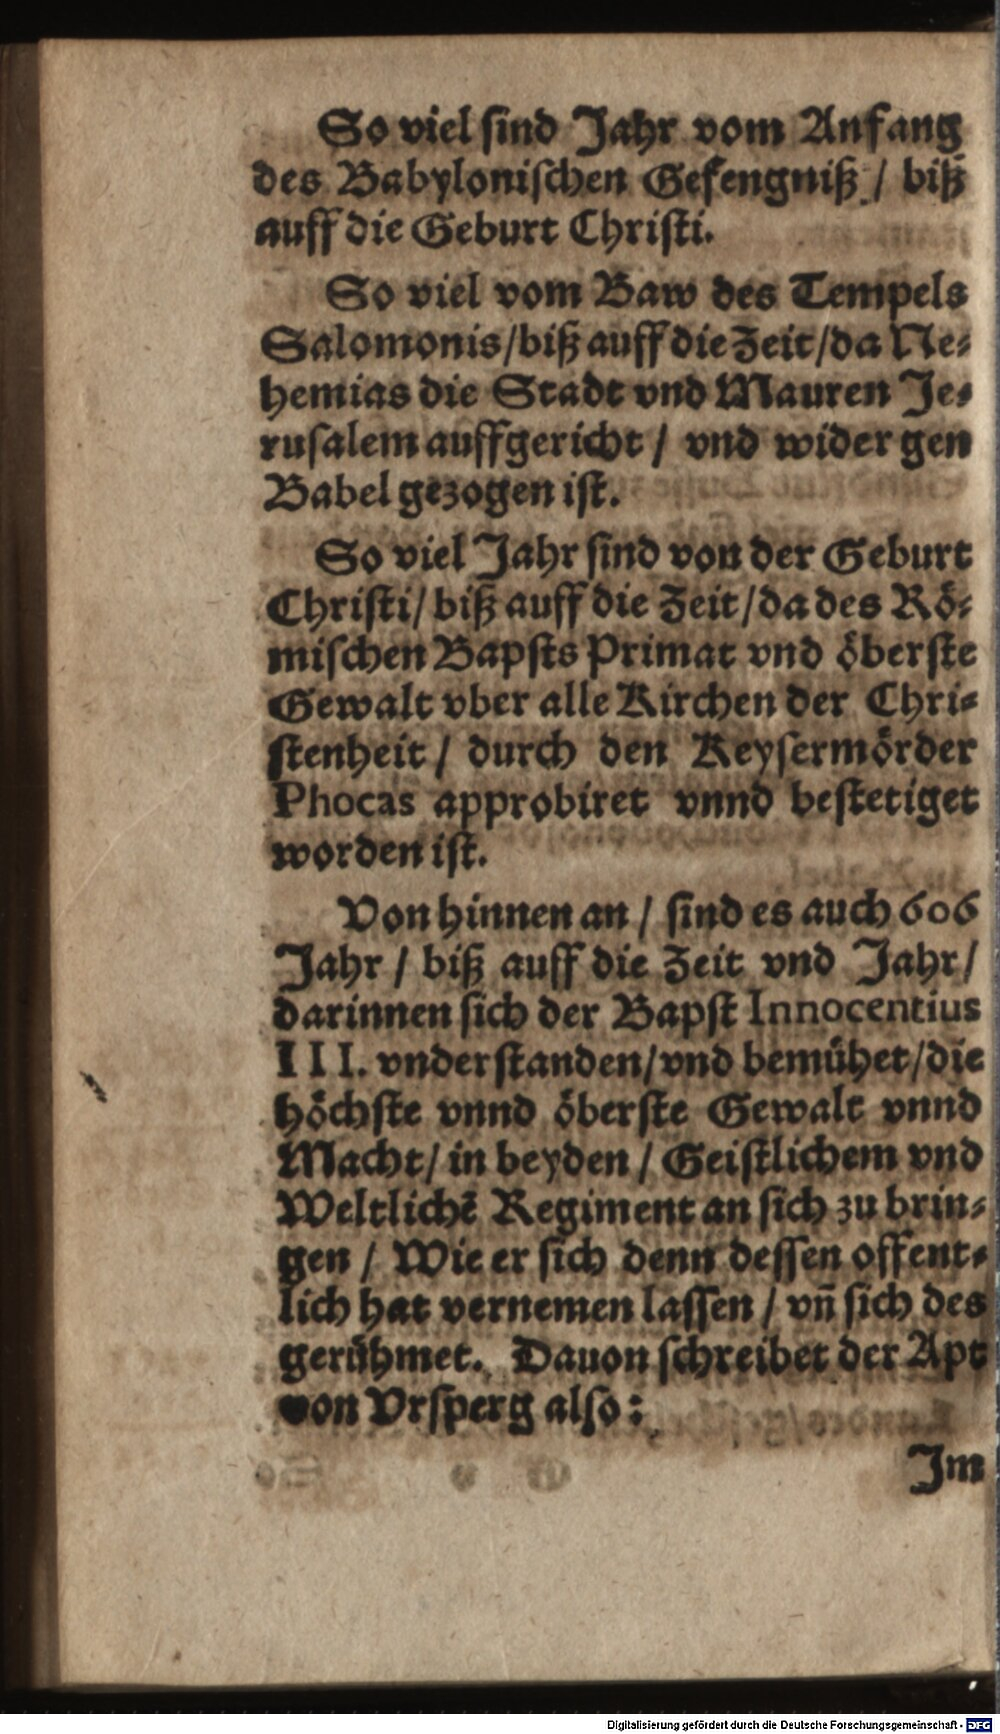 So viel ſind Jahr vom Anfang
des Babylonifchen Gefengniß / biß
auff die Geburt Chriſti.
So viel vom Baw des Tempels
Salomonis/biß auff die Zeit/da Ne⸗
hemias die Stadt vnd Mauren Je⸗
ruſalem auffgericht / vnd wider gen
Babel gezogen iſt.
So viel Jahr ſind von der Geburt
Chriſti/ biß auff die Zeit/da des Rö⸗
miſchen Bapſts Primat vnd öberſte
Gewalt vber alle Kirchen der Chri⸗
ſtenheit / durch den Keyſermörder
Phocas approbiret vnnd beſtetiget
worden iſt.
Von hinnen an / ſind es auch 606
Jahr / biß auff die Zeit vnd Jahr/
darinnen ſich der Bapſt Innocentius
III. vnderſtanden/vnd bemühet/die
höchſte vnnd öberſte Gewalt vnnd
Macht/ in beyden / Geiſtlichem vnd
Weltlichē Regiment an ſich zu brin⸗
gen / Wie er ſich denn deſſen offent⸗
lich hat vernemen laſſen / vn̄ ſich des
gerühmet. Dauon ſchreibet der Apt
von Vrſperg alſo:
Im
Digitalisierung gefördert durch die Deutsche Forschungsgemeinschaft - DFG